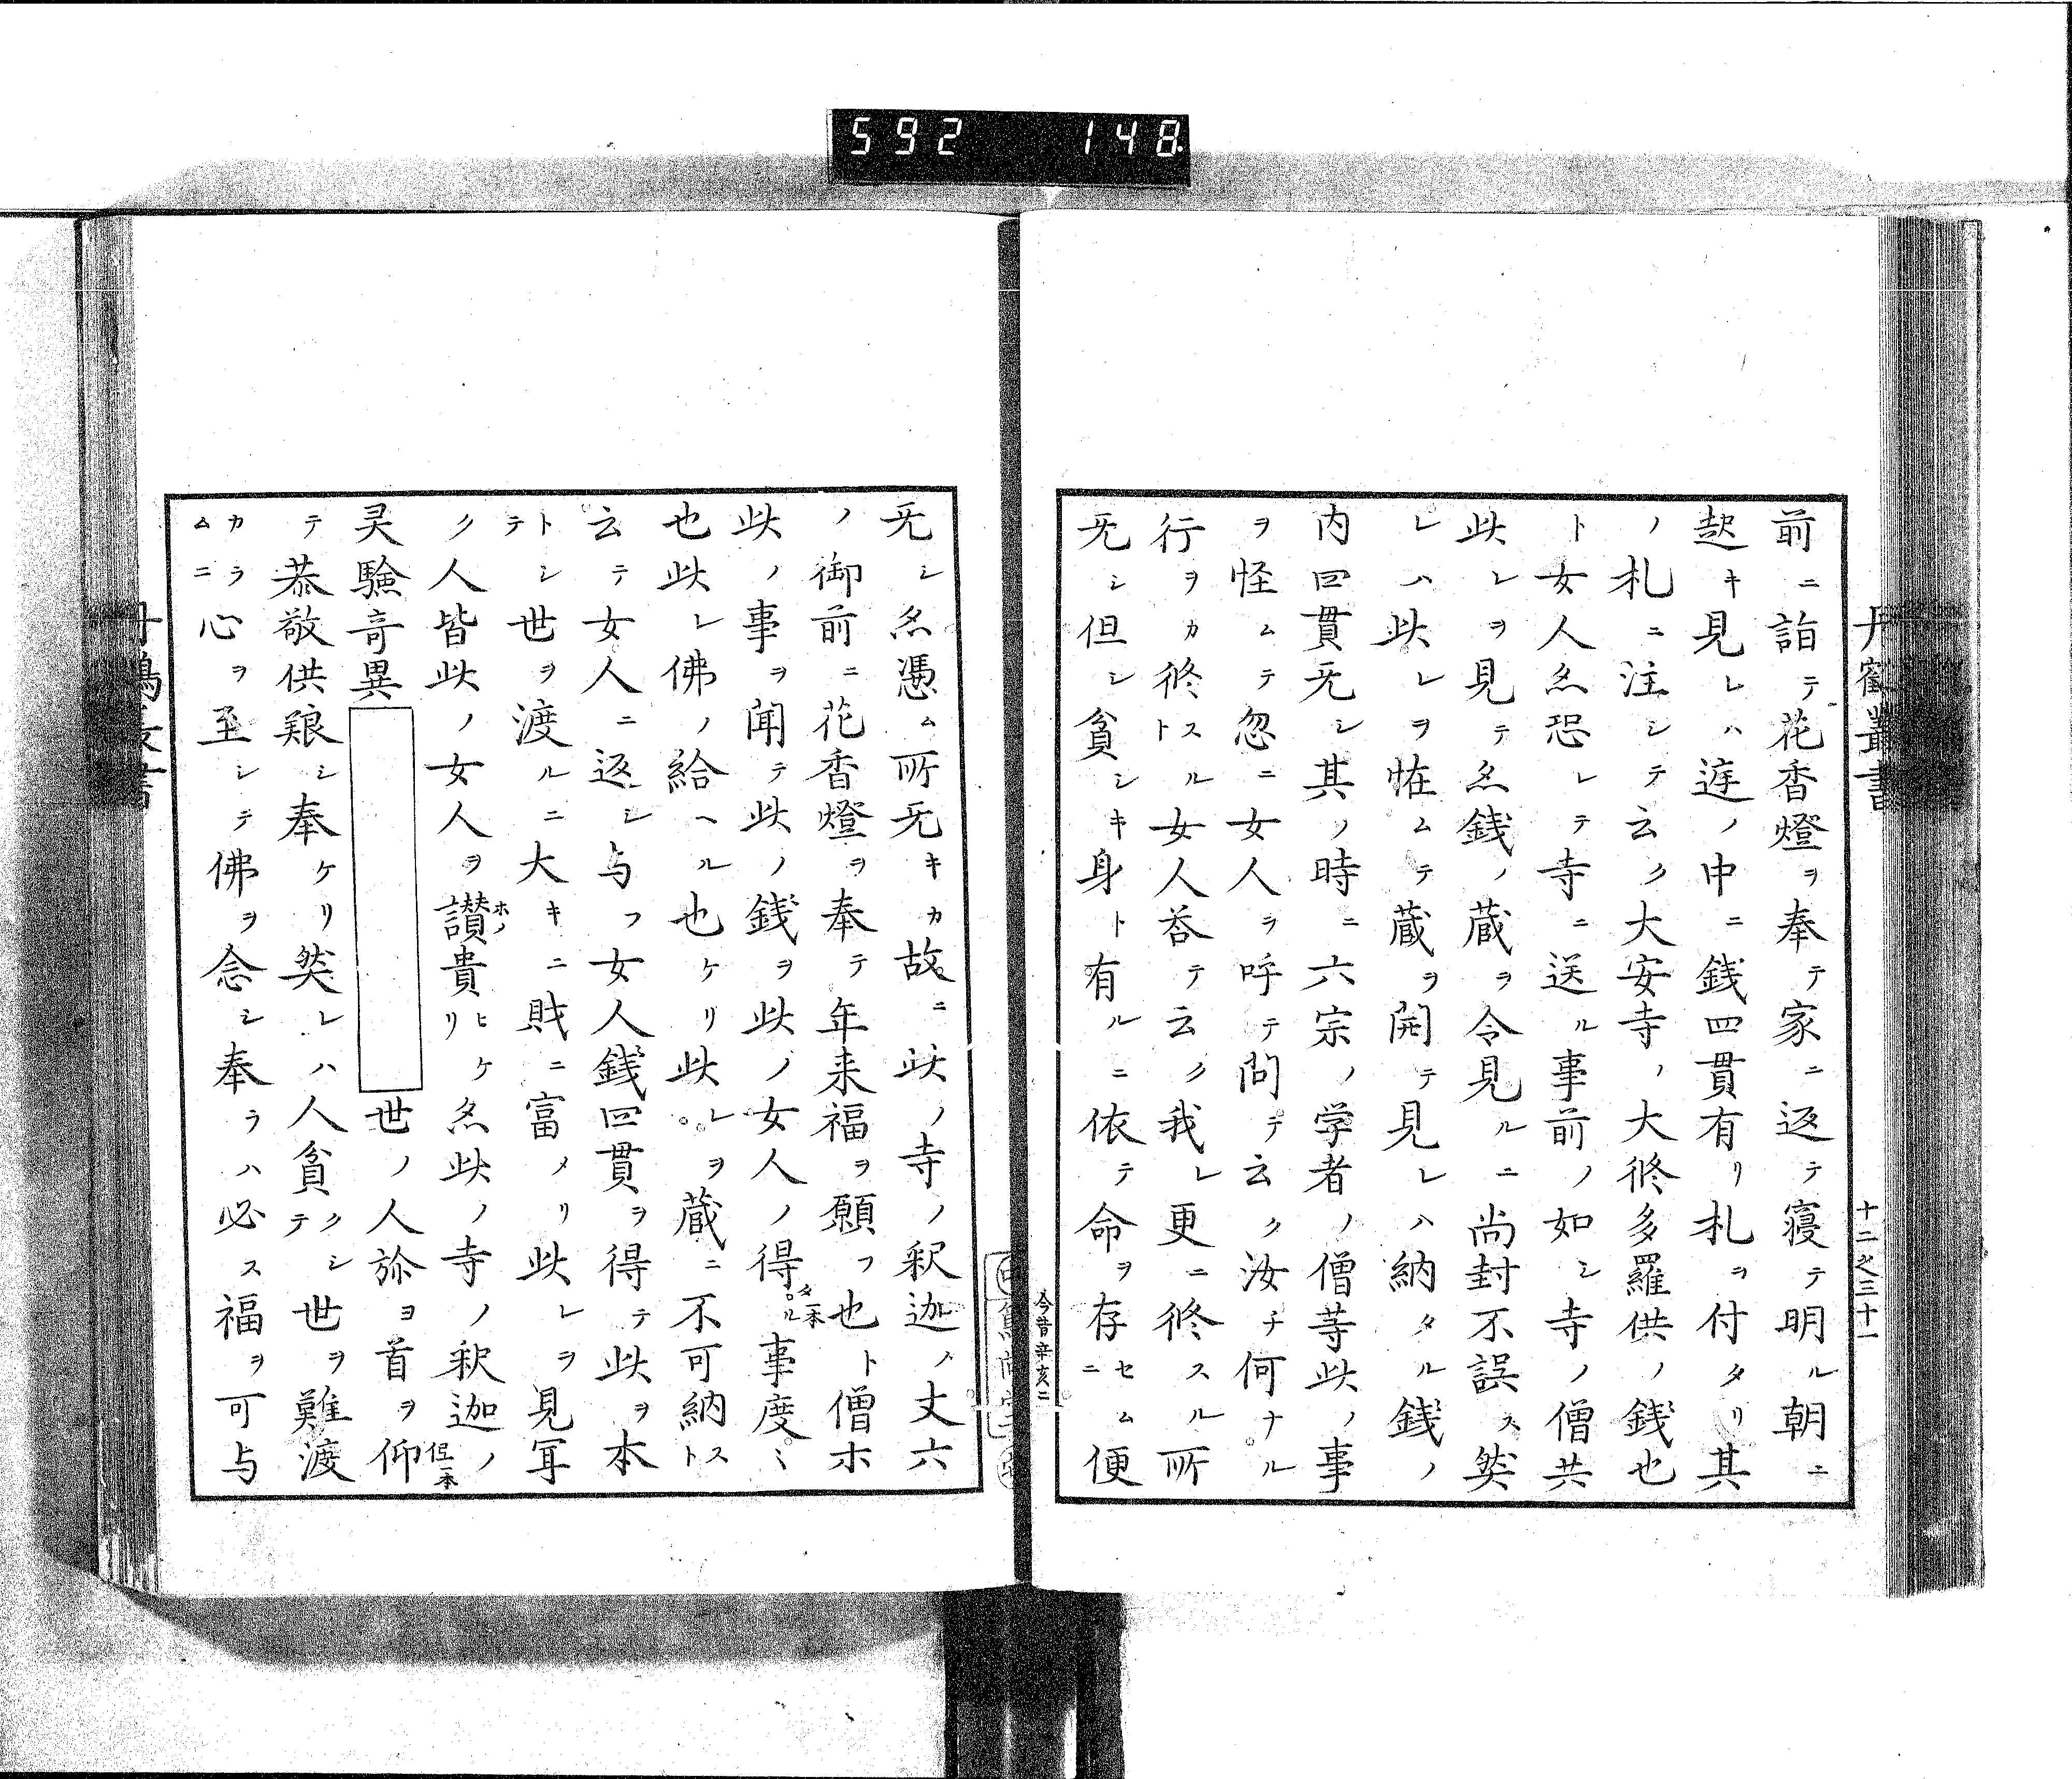 592 148
丹鶴叢書
十二之三十一
前ニ詣テ花香燈ヲ奉テ家ニ返テ寝テ明ル朝ニ
起キ見レハ庭ノ中ニ銭四貫有リ札ヲ付タリ其
ノ札ニ注シテ云ク大安寺ノ大修多羅供ノ銭也
ト女人亦恐レテ寺ニ送ル事前ノ如シ寺ノ僧共
此レヲ見テ亦銭ノ蔵ヲ令見ルニ尚封不誤ス然
レハ此レヲ恠ムテ蔵ヲ開テ見レハ納タル銭ノ
内四貫无シ其ノ時ニ六宗ノ学者ノ僧等此ノ事
ヲ怪ムテ忽ニ女人ヲ呼テ問テ云ク汝チ何ナル
行ヲカ修スルト女人答テ云ク我レ更ニ修スル所
无シ但シ貧シキ身ト有ルニ依テ命ヲ存セムニ便
今昔辛亥二
无シ亦憑ム所无キカ故ニ此ノ寺ノ釈迦ノ丈六
ノ御前ニ花香燈ヲ奉テ年来福ヲ願フ也ト僧ホ
此ノ事ヲ聞テ此ノ銭ヲ此ノ女人ノ得ル事度〻
タ一本
也此レ佛ノ給ヘル也ケリ此レヲ蔵ニ不可納スト
云テ女人ニ返シ与フ女人銭四貫ヲ得テ此ヲ本
トシテ世ヲ渡ルニ大キニ財ニ富メリ此レヲ見耳
ク人皆此ノ女人ヲ讃貴ヒケリ亦此ノ寺ノ釈迦ノ
ホメ
但一本
灵驗奇異 世ノ人旀ヨ首ヲ仰
テ恭敬供粮シ奉ケリ然レハ人貧クシテ世ヲ難渡
カラムニ心ヲ至シテ佛ヲ念シ奉ラハ必ス福ヲ可与